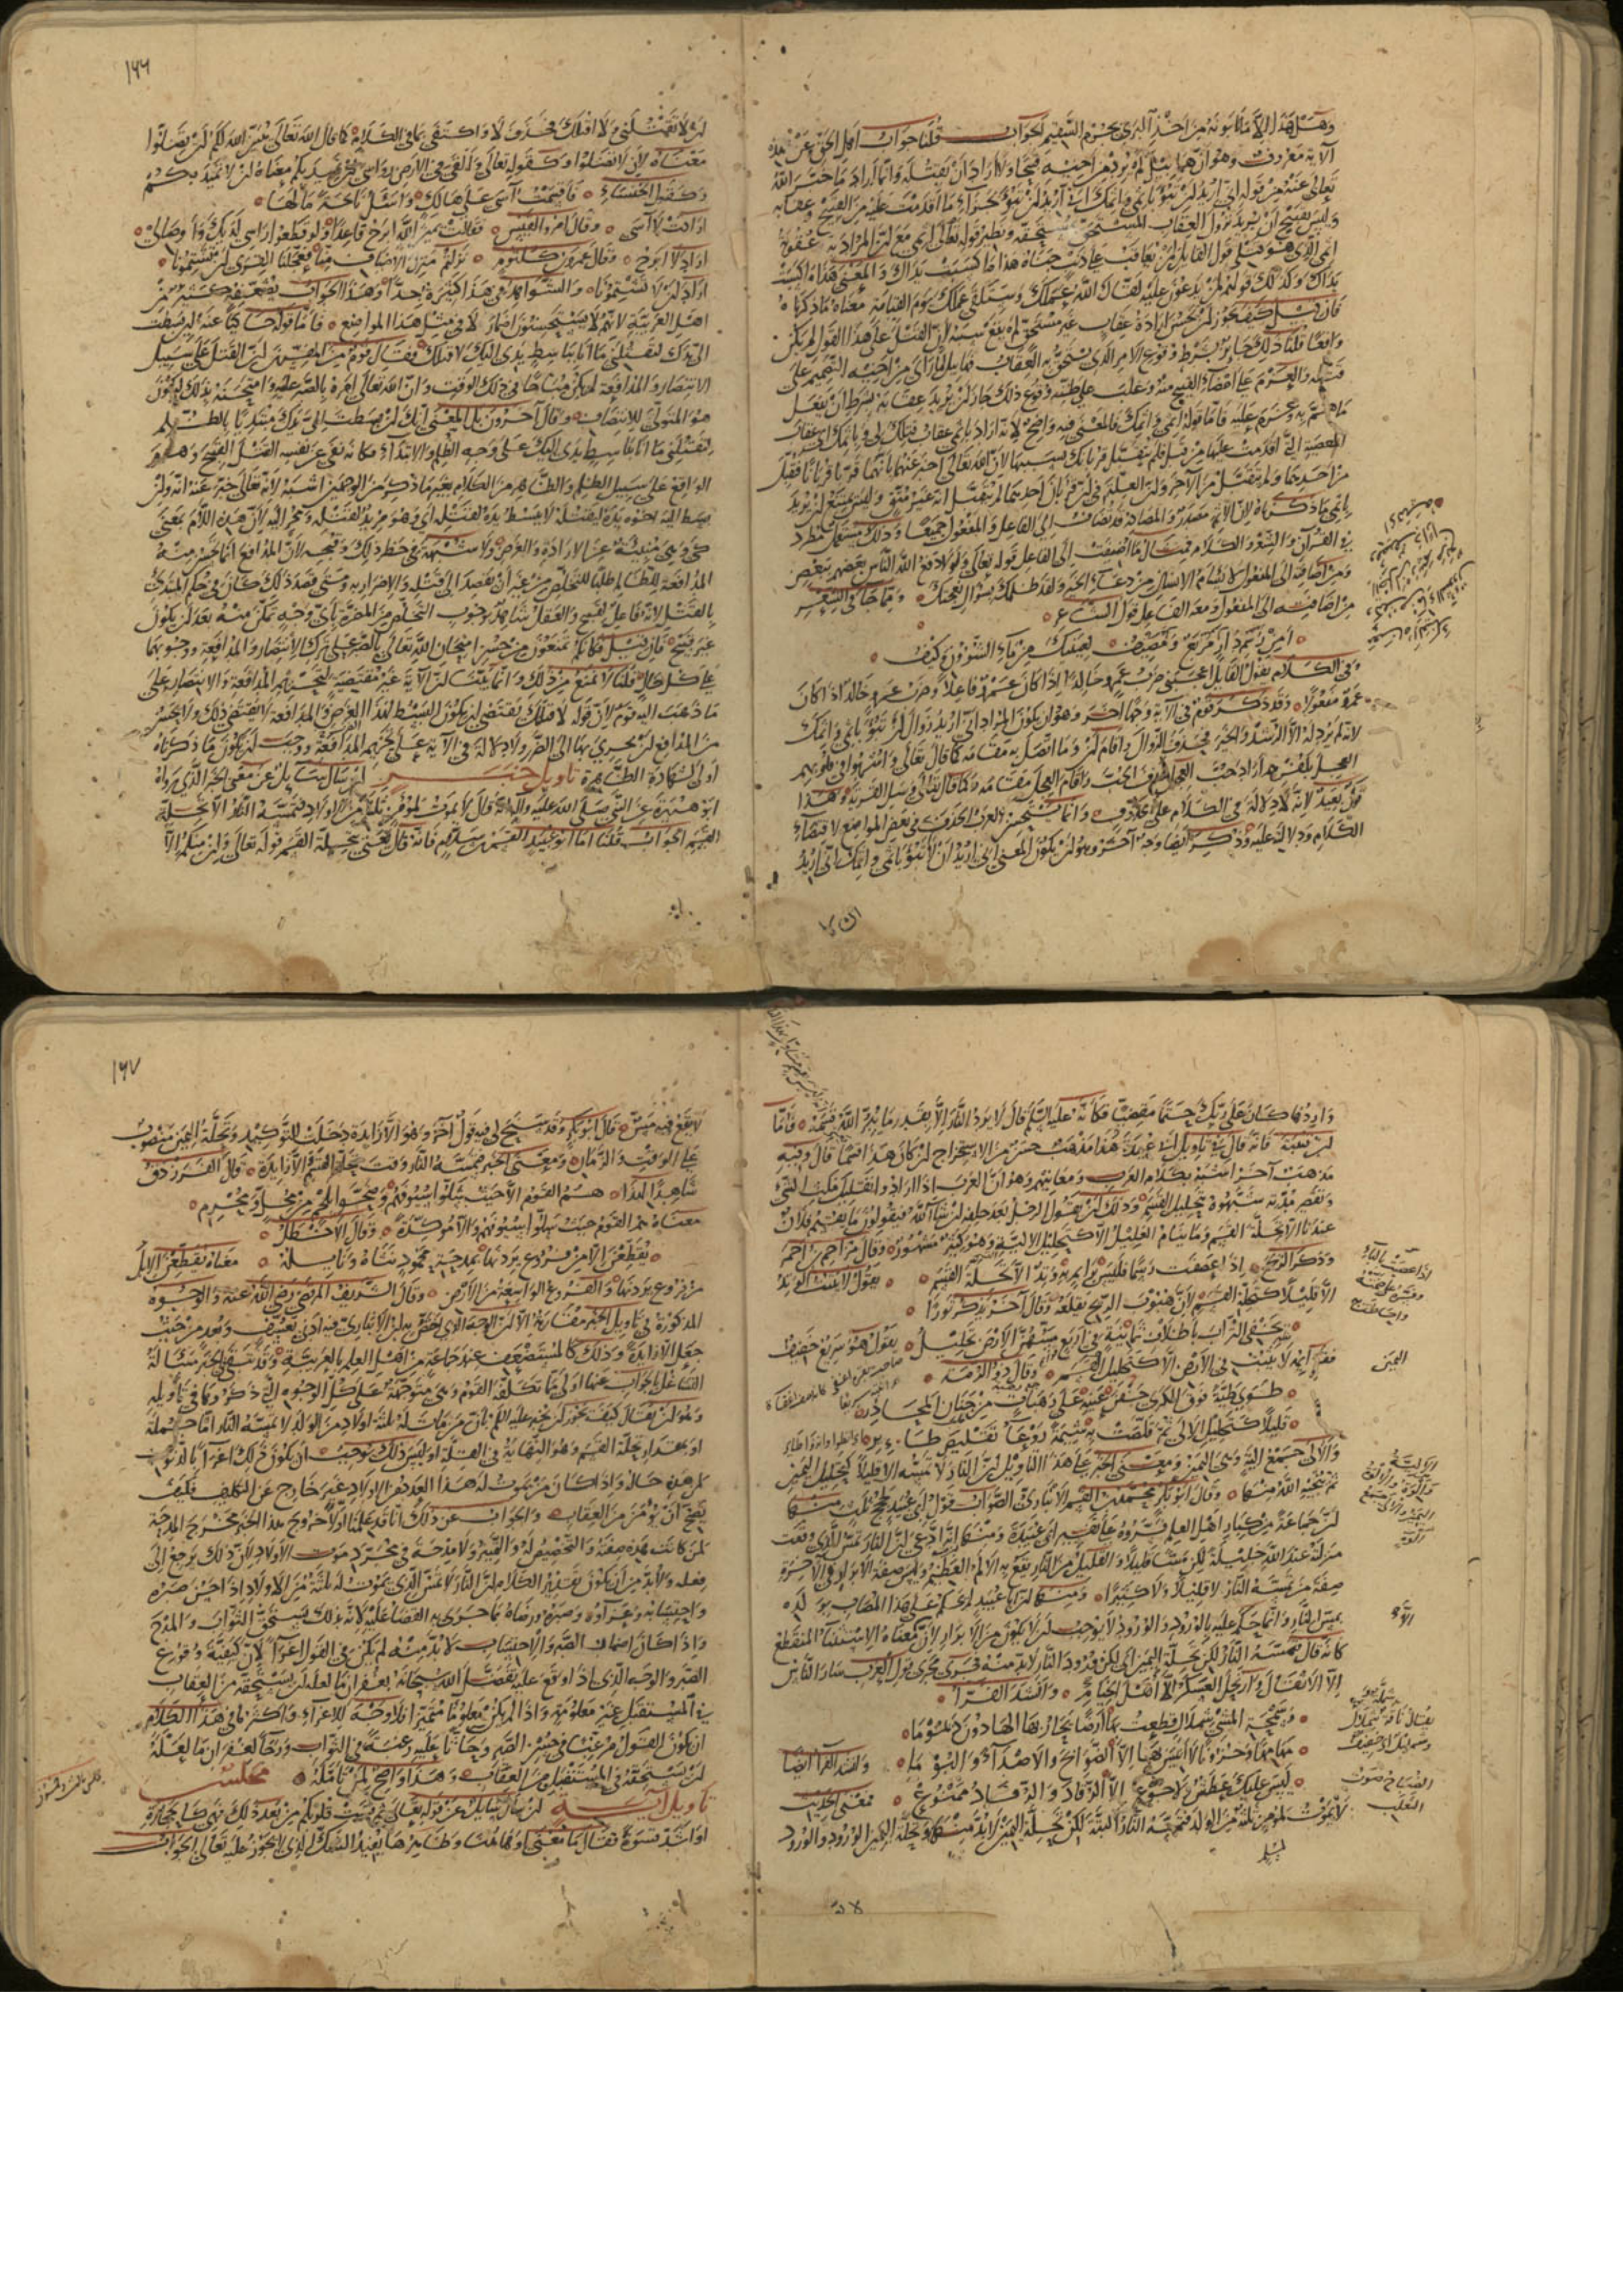 وهل هذا الا ما تأبونه من اخذ البرئ بجرم السقيم الجواب قلنا جواب اهل الحق عن هذه
الآية معروف وهو ان هابيل لم يرد من اخيه قبيحا ولا اراد ان يقتله وانما اراد ما خبر الله
تعالى عنه من قوله اني اريد ان تبوء باثمي واثمك اي اني اريد ان تبوء بجزاء ما اقدمت عليه من القبيح وعقابه
وليس بقبيح ان يريد نزول العقاب المستحق بمستحقه ونظير قوله تعالى اثمي مع ان المراد به عقوبة
اثمي الذي هو قتلي قول القائل لمن يعاقب على ذنب جناه هذا ما كسبت يداك والمعنى هذا جزاء ما كسبت
يداك وكذلك قولهم لمن يدعون عليه لقاك الله عملك وستلقى عملك يوم القيامة معناه ما ذكرناه
فان قيل كيف يجوز ان يحسن ارادة عقاب غير مستحق لم يقع سببه لان القتل على هذا القول لم يكن
واقعا قلنا ذلك جائز بشرط وقوع الامر الذي يستحق به العقاب فهابيل لما رأى من اخيه التصميم على
قتله والعزم على امضاء القبيح منه وغلب على ظنه وقوع ذلك جاز ان يريد عقابه بشرط ان يفعل
ما هم به وعزم عليه فاما قوله اثمي واثمك فالمعنى فيه واضح لانه اراد باثمي عقاب قتلك لي وباثمك اي عقاب
المعصية التي اقدمت عليها من قبل فلم يتقبل قربانك بسببها لان الله تعالى اخبر عنهما بانهما قربا قربانا فتقبل
من احدهما ولم يتقبل من الآخر وان العلة في ان قربان احدهما لم يتقبل انه غير متق وليس يمتنع ان يريد
باثمي ما ذكرناه لان الاثم مصدر والمصادر قد تضاف الى الفاعل والمفعول جميعا وذلك مستعمل مطرد
في القرآن والشعر والكلام فمثال ما اضيف الى الفاعل قوله تعالى ولولا دفع الله الناس بعضهم ببعض
ومن اضافته الى المفعول لا يسأم الانسان من دعاء الخير ولقد ظلمك بسؤال نعجتك ومما جاء في الشعر
من اضافته الى المفعول ومعه الفاعل قول الشاعر
امن رسم دار مربع ومصيف لعينيك من ماء الشؤون وكيف
وفي الكلام يقول القائل اعجبني ضرب عمرو خالدا اذا كان عمرو فاعلا وضرب عمرو خالد اذا كان
عمرو مفعولا وقد ذكر قوم في الآية وجها آخر وهو ان يكون المراد اني اريد زوال ان تبوء باثمي واثمك
لانه لم يرد له الا الرشد والخير فحذف الزوال واقام ان وما اتصل به مقامه كما قال تعالى واشربوا في قلوبهم
العجل بكفرهم اراد حب العجل فحذف الحب واقام العجل مقامه وكما قال تعالى وسل القرية وهذا
قول بعيد لانه لا دلالة في الكلام على محذوف وانما تستحسن العرب الحذف في بعض المواضع لاقتضاء
الكلام ودلالته عليه وذكر ايضا وجه آخر وهو ان يكون المعنى اني اريد ان لا تبوء باثمي واثمك اي اريد
١٦٦
ان لا تقتلني ولا اقتلك فحذف لا واكتفى بما في الكلام كما قال الله تعالى يبين الله لكم ان تضلوا
معناه لان لا تضلوا وكقوله تعالى والقى في الارض رواسي ان تميد بكم معناه ان لا تميد بكم
وكقول الخنساء فاقسمت آسى على هالك واسئل نائحة ما لها
ارادت لا آسى وقال امرؤ القيس فقالت يمين الله ابرح قاعدا ولو قطعوا رأسي لديك واوصالي
اراد لا ابرح وقال عمرو بن كلثوم نزلتم منزل الاضياف منا فعجلنا القرى ان تشتمونا
اراد ان لا تشتمونا والشواهد في هذا كثيرة جدا وهذا الجواب يضعفه كثير من
اهل العربية لانهم لا يستحسنون اضمار لا في مثل هذا الموضع فاما قوله حاكيا عنه لئن بسطت
الي يدك لتقتلني ما انا بباسط يدي اليك لاقتلك فقال قوم من المفسرين ان القتل على سبيل
الانتصار والمدافعة لم يكن مباحا في ذلك الوقت وان الله تعالى امره بالصبر عليه وامتحنه بذلك ليكون
هو المتولي للانتصاف وقال آخرون بل المعنى انك لئن بسطت الي يدك مبتديا بالظلم
لتقتلني ما انا بباسط يدي اليك على وجه الظلم والابتداء فكأنه نفى عن نفسه القتل القبيح وهو
الواقع على سبيل الظلم والظاهر من الكلام بغير ما ذكر من الوجهين اشبه لانه تعالى خبر عنه انه وان
بسط اليه اخوه يده ليقتله لا يبسط يده ليقتله اي وهو مريد لقتله ومجر اليه لان هذه اللام بمعنى
كي وهي منبئة عن الارادة والغرض ولا شبهة في حظر ذلك وقبحه لان المدافع انما يحسن منه
المدافعة للظالم طلبا للتخلص من غير ان يقصد الى قتله والاضرار به ومتى قصد ذلك كان في حكم المبتدئ
بالقتل لانه فاعل لقبيح والعقل شاهد بوجوب التخلص من المضرة باي وجه تمكن منه بعد ان يكون
غير قبيح فان قيل فكأنكم تمنعون من حسن امتحان الله تعالى بالصبر على ترك الانتصار والمدافعة ووجوبهما
على كل حال قلنا لا نمنع من ذلك وانما بينا ان الآية غير مقتضية لتحريم المدافعة والانتصار على
ما ذهب اليه قوم لان قوله لاقتلك يقتضي ان يكون البسط لهذا الغرض والمدافعة لا تقتضي ذلك ولا يحسن
من المدافع ان يجري بها الى الضرر ولا دلالة في الآية على تحريم المدافعة ووجب ان يكون ما ذكرناه
اولى لشهادة الظاهر تاويل خبر ان سأل سائل عن معنى الخبر الذي رواه
ابو هريرة عن النبي صلى الله عليه وآله انه قال لا يموت لمؤمن ثلثة من الاولاد فتمسه النار الا تحلة
القسم الجواب قلنا اما ابو عبيد القسم بن سلام فانه قال يعني بتحلة القسم قوله تعالى وان منكم الا
واردها كان على ربك حتما مقضيا فكأنه عليه السلام قال لا يرد النار الا بقدر ما يبر الله قسمه فاما
ابن قتيبة فانه قال في تاويل ابي عبيد هذا مذهب حسن من الاستخراج ان كان هذا قسما قال وفيه
مذهب آخر اشبه بكلام العرب ومعانيهم وهو ان العرب اذا ارادوا تقليل مكث الشيء
وتقصير مدته شبهوه بتحليل القسم وذلك ان يقول الرجل بعد حلفه ان شاء الله فيقولون ما يقيم فلان
عندنا الا تحلة القسم وما ينام العليل الا كتحليل الالية وهو كثير مشهور وقال مزاحم بن احمر
وذكر الريح اذا عصفت رسما فليس بدائم به وتد الا تحلة القسم يقول لا يثبت الوتد
الا قليلا كتحلة القسم لان هبوب الريح يقلعه وقال آخر يذكر ثورا
يخفي التراب باظلاف ثمانية في اربع مسهن الارض تحليل يقول هو سريع خفيف
فقوائمه لا تثبت في الارض الا كتحليل القسم وقال ذو الرمة
طوى طية فوق الكرى جفن عينه على رهبات من جنان المحاذر
قليلا كتحليل الالى ثم قلصت به شيمة روعاء تقليص طائر
والالى جمع الية وهي اليمين ومعنى الخبر على هذا التاويل ان النار لا تمسه الا قليلا كتحليل اليمين
ثم ينجيه الله منها وقال ابو بكر محمد بن القسم الانباري الصواب قول ابي عبيد لحجج ثلث منها
ان جماعة من كبار اهل العلم فسروه على تفسير ابي عبيدة ومنها انه ادعى ان النار تمس الذي وقعت
منزلته عند الله جليلة لكن مسا قليلا والقليل من النار يقع به الالم العظيم وليس صفة الابرار في الآخرة
صفة من تمسه النار لا قليلا ولا كثيرا ومنها ان ابا عبيد لم يحكم على هذا المصاب بولده
بمس النار وانما حكم عليه بالورود والورود لا يوجب ان لا يكون من الابرار لان معناه الاستثناء المنقطع
كأنه قال فتمسه النار لكن تحلة اليمين اي لكن ورود النار لا بد منه فجرى مجرى قول العرب سار الناس
الا الاثقال وارتحل العسكر الا اهل الخيام وانشد الفراء
وسمحة المشي شملال قطعت بها ارضا يحار بها الهادون ديموما
مهامها وحزونا لا انيس بها الا الصوائح والاصداء والبوما وانشد الفراء ايضا
ليس عليك عطش ولا جوع الا الرقاد والرقاد ممنوع فمعنى الحديث
لا يموت لمؤمن ثلثة من الولد فتمسه النار البتة لكن تحلة اليمين لا بد منها وتحلة اليمين الورود والورود
١٦٧
لا يقع فيه مس قال ابو بكر وقد سنح لي فيه قول آخر وهو الا زايدة دخلت للتوكيد وتحلة اليمين منصوب
على الوقت والزمان ومعنى الخبر فتمسه النار وقت تحلة القسم والا زايدة قال الفرزدق
شاهدا لهذا هم القوم الا حيث سلوا سيوفهم وضحوا بلحم من محل ومحرم
معناه هم القوم حيث سلوا سيوفهم والا مؤكدة وقال الاخطل
يقطعن الا من فروع يردنها بمدحة محمود نثاه ونايله معناه يقطعن الابل
من فروع يردنها والفروع الواسعة من الارض وقال الشريف المرتضى رضي الله عنه والوجوه
المذكورة في تاويل الخبر متقاربة الا ان الوجه الذي اختص به ابن الانباري فيه ادنى تعسف وبعد من حيث
جعل الا زايدة وذلك كالمستضعف عند جماعة من اهل العلم بالعربية وقد تبقى في الخبر مسألة
التشاغل بالجواب عنها اولى مما تكلفه القوم وهي متوجهة على كل الوجوه التي ذكروها في تاويله
وهو ان يقال كيف يجوز ان يخبر عليه السلم بان من مات له ثلثة اولاد من الولد لا تمسه النار اما جملة
او بمقدار تحلة القسم وهو النهاية في القلة اوليس ذلك يوجب ان يكون ذلك اغراء بالذنوب
لمن هذه حاله واذا كان من يموت له هذا العدد من الاولاد غير خارج عن التكليف فكيف
يصح ان يؤمن من العقاب والجواب عن ذلك انا قد علمنا اولا خروج هذا الخبر مخرج المدحة
لمن كانت هذه صفته والتخصيص له والتمييز ولا مدحة في مجرد موت الاولاد لان ذلك يرجع الى
فعله ولا بد من ان يكون تقدير الكلام ان النار لا تمس الذي يموت له ثلثة من الاولاد اذا احسن صبره
واحتسابه وعزاؤه وصبره ورضاه بما جرى به القضاء عليه لانه بذلك يستحق الثواب والمدح
واذا كان اضمار الصبر والاحتساب لا بد منه لم يكن في القول اغراء لان كيفية وقوع
الصبر والوجه الذي اذا وقع عليه تفضل الله سبحانه بغفران ما لعله ان يستحقه من العقاب
في المستقبل غير معلومة واذا لم يكن معلوما متميزا فلا وجه للاغراء واكثر ما في هذا الكلام
ان يكون القول مرغبا في حسن الصبر وحاثا عليه رغبة في الثواب ورجاء لغفران ما لعله
ان يستحقه في المستقبل من العقاب وهذا واضح لمن تأمله مجلس
تاويل آية ان سأل سائل عن قوله تعالى ثم قست قلوبكم من بعد ذلك فهي كالحجارة
او اشد قسوة فقال ما معنى او هاهنا وظاهرها يفيد الشك الذي لا يجوز عليه تعالى الجواب